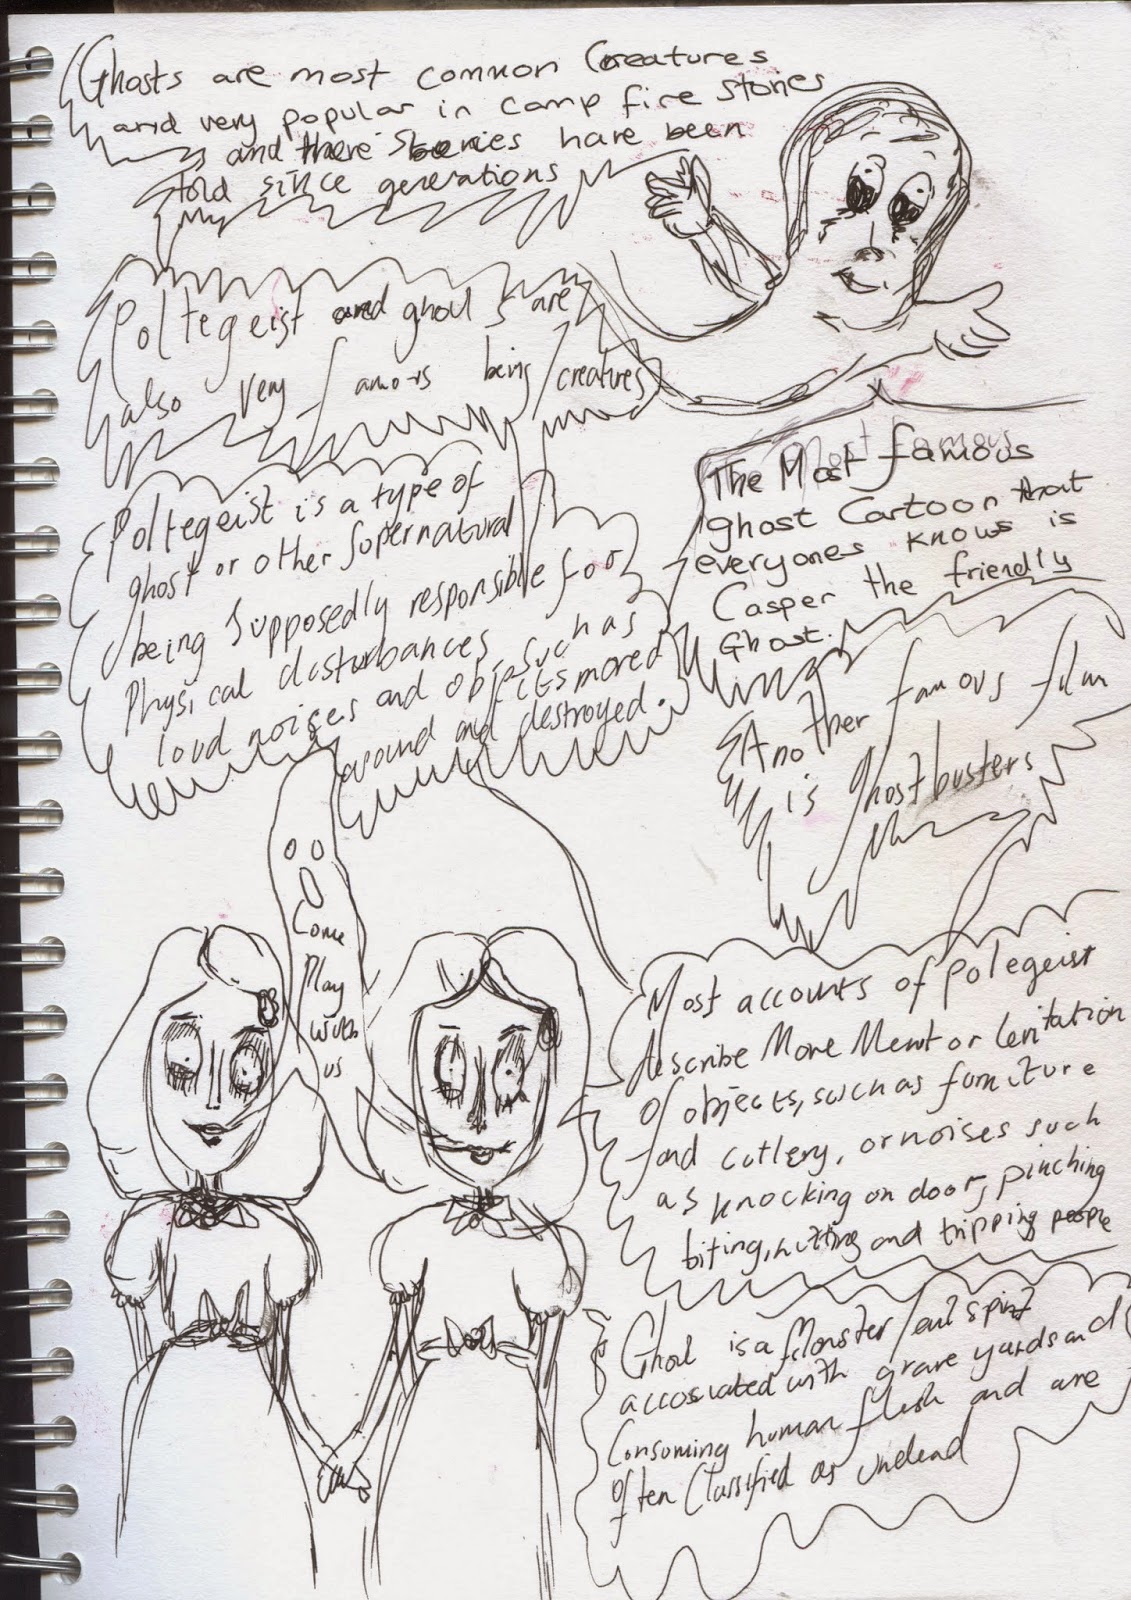 Ghosts are most common Creatures
and very popular in camp fire stories
and there stories have been
told since generations
Poltegeist and ghoul s are
also very famous being/creatures
Poltegeist is a type of
ghost or other supernatural
being supposedly responsible for
Physical disturbances such as
loud noises and objects moved
around and destroyed.
The Most famous
ghost Cartoon that
everyones knows is
Casper the friendly
Ghost.
Another famous film
is Ghostbusters
Come
Play
with
us
Most accounts of polegeist
describe Movement or levitation
of objects, such as furniture
and cutlery, or noises such
as knocking on door, pinching
biting, hitting and tripping people
Ghoul is a Monster/evil spirit
accosiated with grave yards and
Consuming human flesh and are
Often Classified as undead